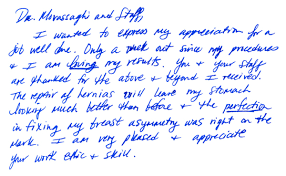 Dr. Movassaghi and Staff,
I wanted to express my appreciation for a
job well done. Only a week out since my procedures
+ I am loving my results. You + your staff
are thanked for the above + beyond I received.
The repair of hernias will leave my stomach
looking much better than before + the perfection
in fixing my breast asymmetry was right on the
mark. I am very pleased + appreciate
your work ethic + skill.